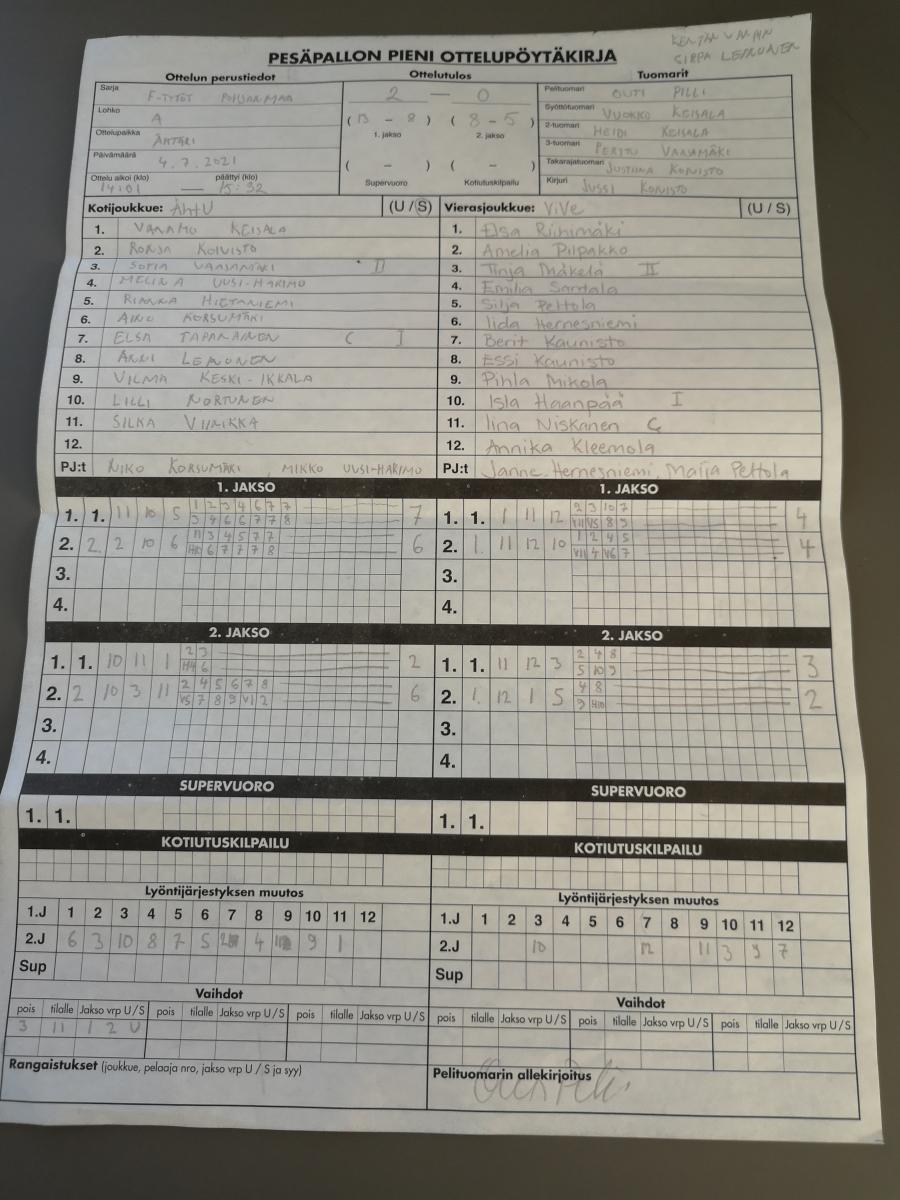 KENTÄN
SIRPA LEMMUNEN
PESÄPALLON PIENI OTTELUPÖYTÄKIRJA
Ottelun perustiedot Ottelutulos Tuomarit
Sarja F-TYTÖT POHJANMAA 2 — 0 Pelituomari OUTI PILLI
Lohko A (13 - 8) (8 - 5) Syöttötuomari VUOKKO KEISALA
1. jakso 2. jakso
Ottelupaikka ÄHTÄRI 2-tuomari HEIDI KEISALA
Päivämäärä 4.7.2021 ( - ) ( - ) 3-tuomari PERTTU VAASAMÄKI
Takarajatuomari JUSTIINA KOIVISTO
Ottelu alkoi (klo) päättyi (klo) Supervuoro Kotiutuskilpailu Kirjuri JUSSI KOIVISTO
14:01 — 15:32
Kotijoukkue: ÄhtU (U / S) Vierasjoukkue: ViVe (U / S)
1. VANAMO KEISALA 1. Elsa Riihimäki
2. RONJA KOIVISTO 2. Amelia Pilpakko
3. SOFIA VAASAMÄKI II 3. Tinja Mäkelä II
4. MELINA UUSI-HARIMO 4. Emilia Santala
5. RIANNA HIETANIEMI 5. Silja Peltola
6. AINO KORSUMÄKI 6. Iida Hernesniemi
7. ELSA TAPANAINEN C I 7. Berit Kaunisto
8. ANNI LEMMUNEN 8. Essi Kaunisto
9. VILMA KESKI-IKKALA 9. Pihla Mikola
10. LILLI NORTUNEN 10. Isla Haanpää I
11. SILKA VIINIKKA 11. Iina Niskanen C
12. 12. Annika Kleemola
PJ:t NIKO KORSUMÄKI, MIKKO UUSI-HARIMO PJ:t Janne Hernesniemi, Maija Peltola
1. JAKSO 1. JAKSO
1. 1. 11 10 5 1 2 3 4 6 7 7 7 1. 1. 1 11 12 2 3 10 7 4
3 4 6 6 7 7 8 VII V5 8 9
2. 2. 2 10 6 11 3 4 5 7 7 6 2. 1. 11 12 10 1 2 4 5 4
H10 6 7 7 7 8 VII 4 V6 7
3. 3.
4. 4.
2. JAKSO 2. JAKSO
1. 1. 10 11 1 2 3 2 1. 1. 11 12 3 2 4 8 3
H4 6 5 10 9
2. 2 10 3 11 2 4 5 6 7 8 6 2. 1. 12 1 5 4 8 2
V5 7 8 9 V1 2 9 H10
3. 3.
4. 4.
SUPERVUORO SUPERVUORO
1. 1. 1. 1.
KOTIUTUSKILPAILU KOTIUTUSKILPAILU
Lyöntijärjestyksen muutos Lyöntijärjestyksen muutos
1.J 1 2 3 4 5 6 7 8 9 10 11 12 1.J 1 2 3 4 5 6 7 8 9 10 11 12
2.J 6 3 10 8 7 5 2 4 9 1 2.J 10 12 11 3 9 7
Sup Sup
Vaihdot Vaihdot
pois tilalle Jakso vrp U / S pois tilalle Jakso vrp U / S pois tilalle Jakso vrp U / S pois tilalle Jakso vrp U / S pois tilalle Jakso vrp U / S pois tilalle Jakso vrp U / S
3 11 1 2 U
Rangaistukset (joukkue, pelaaja nro, jakso vrp U / S ja syy) Pelituomarin allekirjoitus